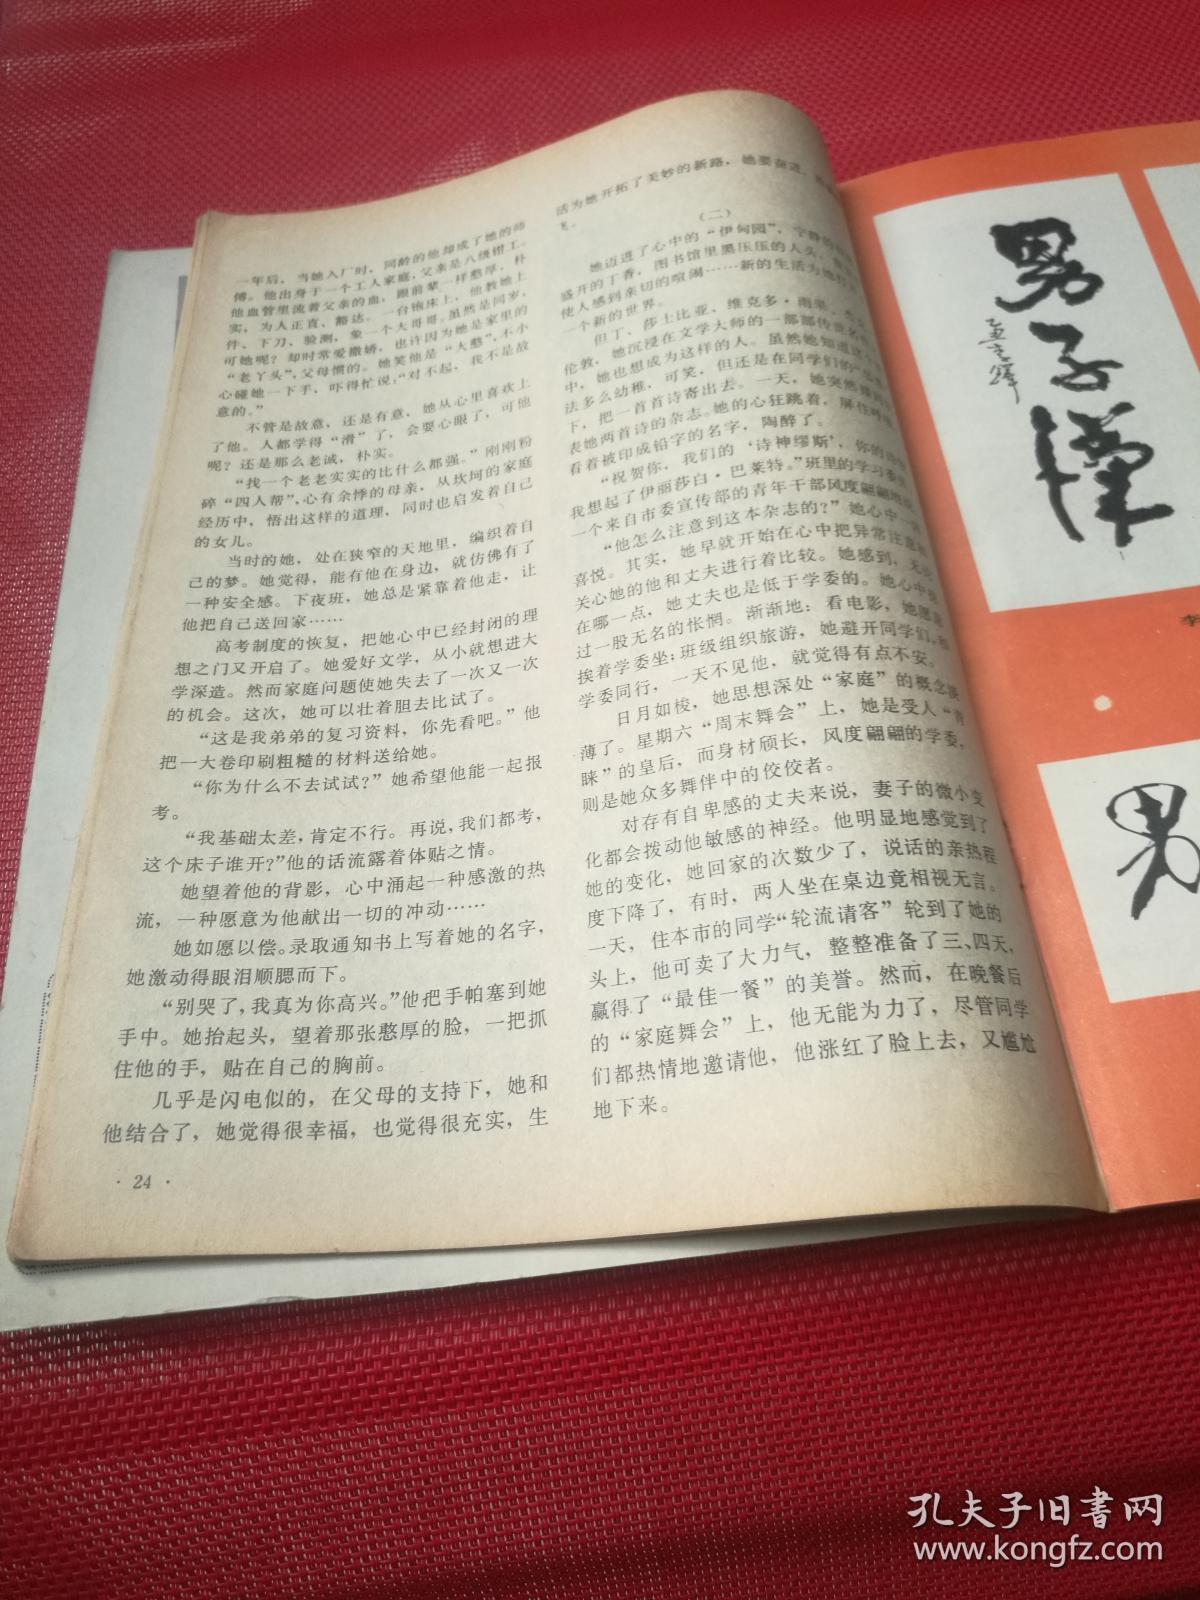 一年后，当她入厂时，同龄的他却成了她的师
傅。他出身于一个工人家庭，父亲是八级钳工。
他血管里流着父亲的血，跟前辈一样憨厚，朴
实，为人正直、豁达。一台铇床上，他教她上
件、下刀、验测，象一个大哥哥。虽然是同岁，
可她呢？却时常爱撒娇，也许因为她是家里的
“老丫头”，父母惯的。她笑他是“大憨”，不小
心碰她一下手，吓得忙说：“对不起，我不是故
意的。”
不管是故意，还是有意，她从心里喜欢上
了他。人都学得“滑”了，会耍心眼了，可他
呢？还是那么老诚，朴实。
“找一个老老实实的比什么都强。”刚刚粉
碎“四人帮”，心有余悸的母亲，从坎坷的家庭
经历中，悟出这样的道理，同时也启发着自己
的女儿。
当时的她，处在狭窄的天地里，编织着自
己的梦。她觉得，能有他在身边，就仿佛有了
一种安全感。下夜班，她总是紧靠着他走，让
他把自己送回家……
高考制度的恢复，把她心中已经封闭的理
想之门又开启了。她爱好文学，从小就想进大
学深造。然而家庭问题使她失去了一次又一次
的机会。这次，她可以壮着胆去比试了。
“这是我弟弟的复习资料，你先看吧。”他
把一大卷印刷粗糙的材料送给她。
“你为什么不去试试？”她希望他能一起报
考。
“我基础太差，肯定不行。再说，我们都考，
这个床子谁开？”他的话流露着体贴之情。
她望着他的背影，心中涌起一种感激的热
流，一种愿意为他献出一切的冲动……
她如愿以偿。录取通知书上写着她的名字，
她激动得眼泪顺腮而下。
“别哭了，我真为你高兴。”他把手帕塞到她
手中。她抬起头，望着那张憨厚的脸，一把抓
住他的手，贴在自己的胸前。
几乎是闪电似的，在父母的支持下，她和
他结合了，她觉得很幸福，也觉得很充实，生
· 24 ·
活为她开拓了美妙的新路，她要奋进，
飞。
（二）
她迈进了心中的“伊甸园”，宁静的
盛开的丁香，图书馆里黑压压的人头，
使人感到亲切的喧闹……新的生活为她
一个新的世界。
但丁、莎士比亚、维克多·雨果、
伦敦，她沉浸在文学大师的一部部传世
中，她也想成为这样的人。虽然她知道这
法多么幼稚，可笑，但还是在同学们的
下，把一首首诗寄出去。一天，她突然
表她两首诗的杂志。她的心狂跳着，屏住呼吸
看着被印成铅字的名字，陶醉了。
“祝贺你，我们的‘诗神缪斯’，你的诗
我想起了伊丽莎白·巴莱特。”班里的学习委员
一个来自市委宣传部的青年干部风度翩翩地
“他怎么注意到这本杂志的？”她心中
喜悦。其实，她早就开始在心中把异常注意
关心她的他和丈夫进行着比较。她感到，无论
在哪一点，她丈夫也是低于学委的。她心中
过一股无名的怅惘。渐渐地：看电影，她愿意
挨着学委坐；班级组织旅游，她避开同学们，和
学委同行，一天不见他，就觉得有点不安。
日月如梭，她思想深处“家庭”的概念淡
薄了。星期六“周末舞会”上，她是受人“青
睐”的皇后，而身材颀长，风度翩翩的学委，
则是她众多舞伴中的佼佼者。
对存有自卑感的丈夫来说，妻子的微小变
化都会拨动他敏感的神经。他明显地感觉到了
她的变化，她回家的次数少了，说话的亲热程
度下降了，有时，两人坐在桌边竟相视无言。
一天，住本市的同学“轮流请客”轮到了她的
头上，他可卖了大力气，整整准备了三、四天，
赢得了“最佳一餐”的美誉。然而，在晚餐后
的“家庭舞会”上，他无能为力了，尽管同学
们都热情地邀请他，他涨红了脸上去，又尴尬
地下来。
男子汉
李
男
孔夫子旧書网
www.kongfz.com